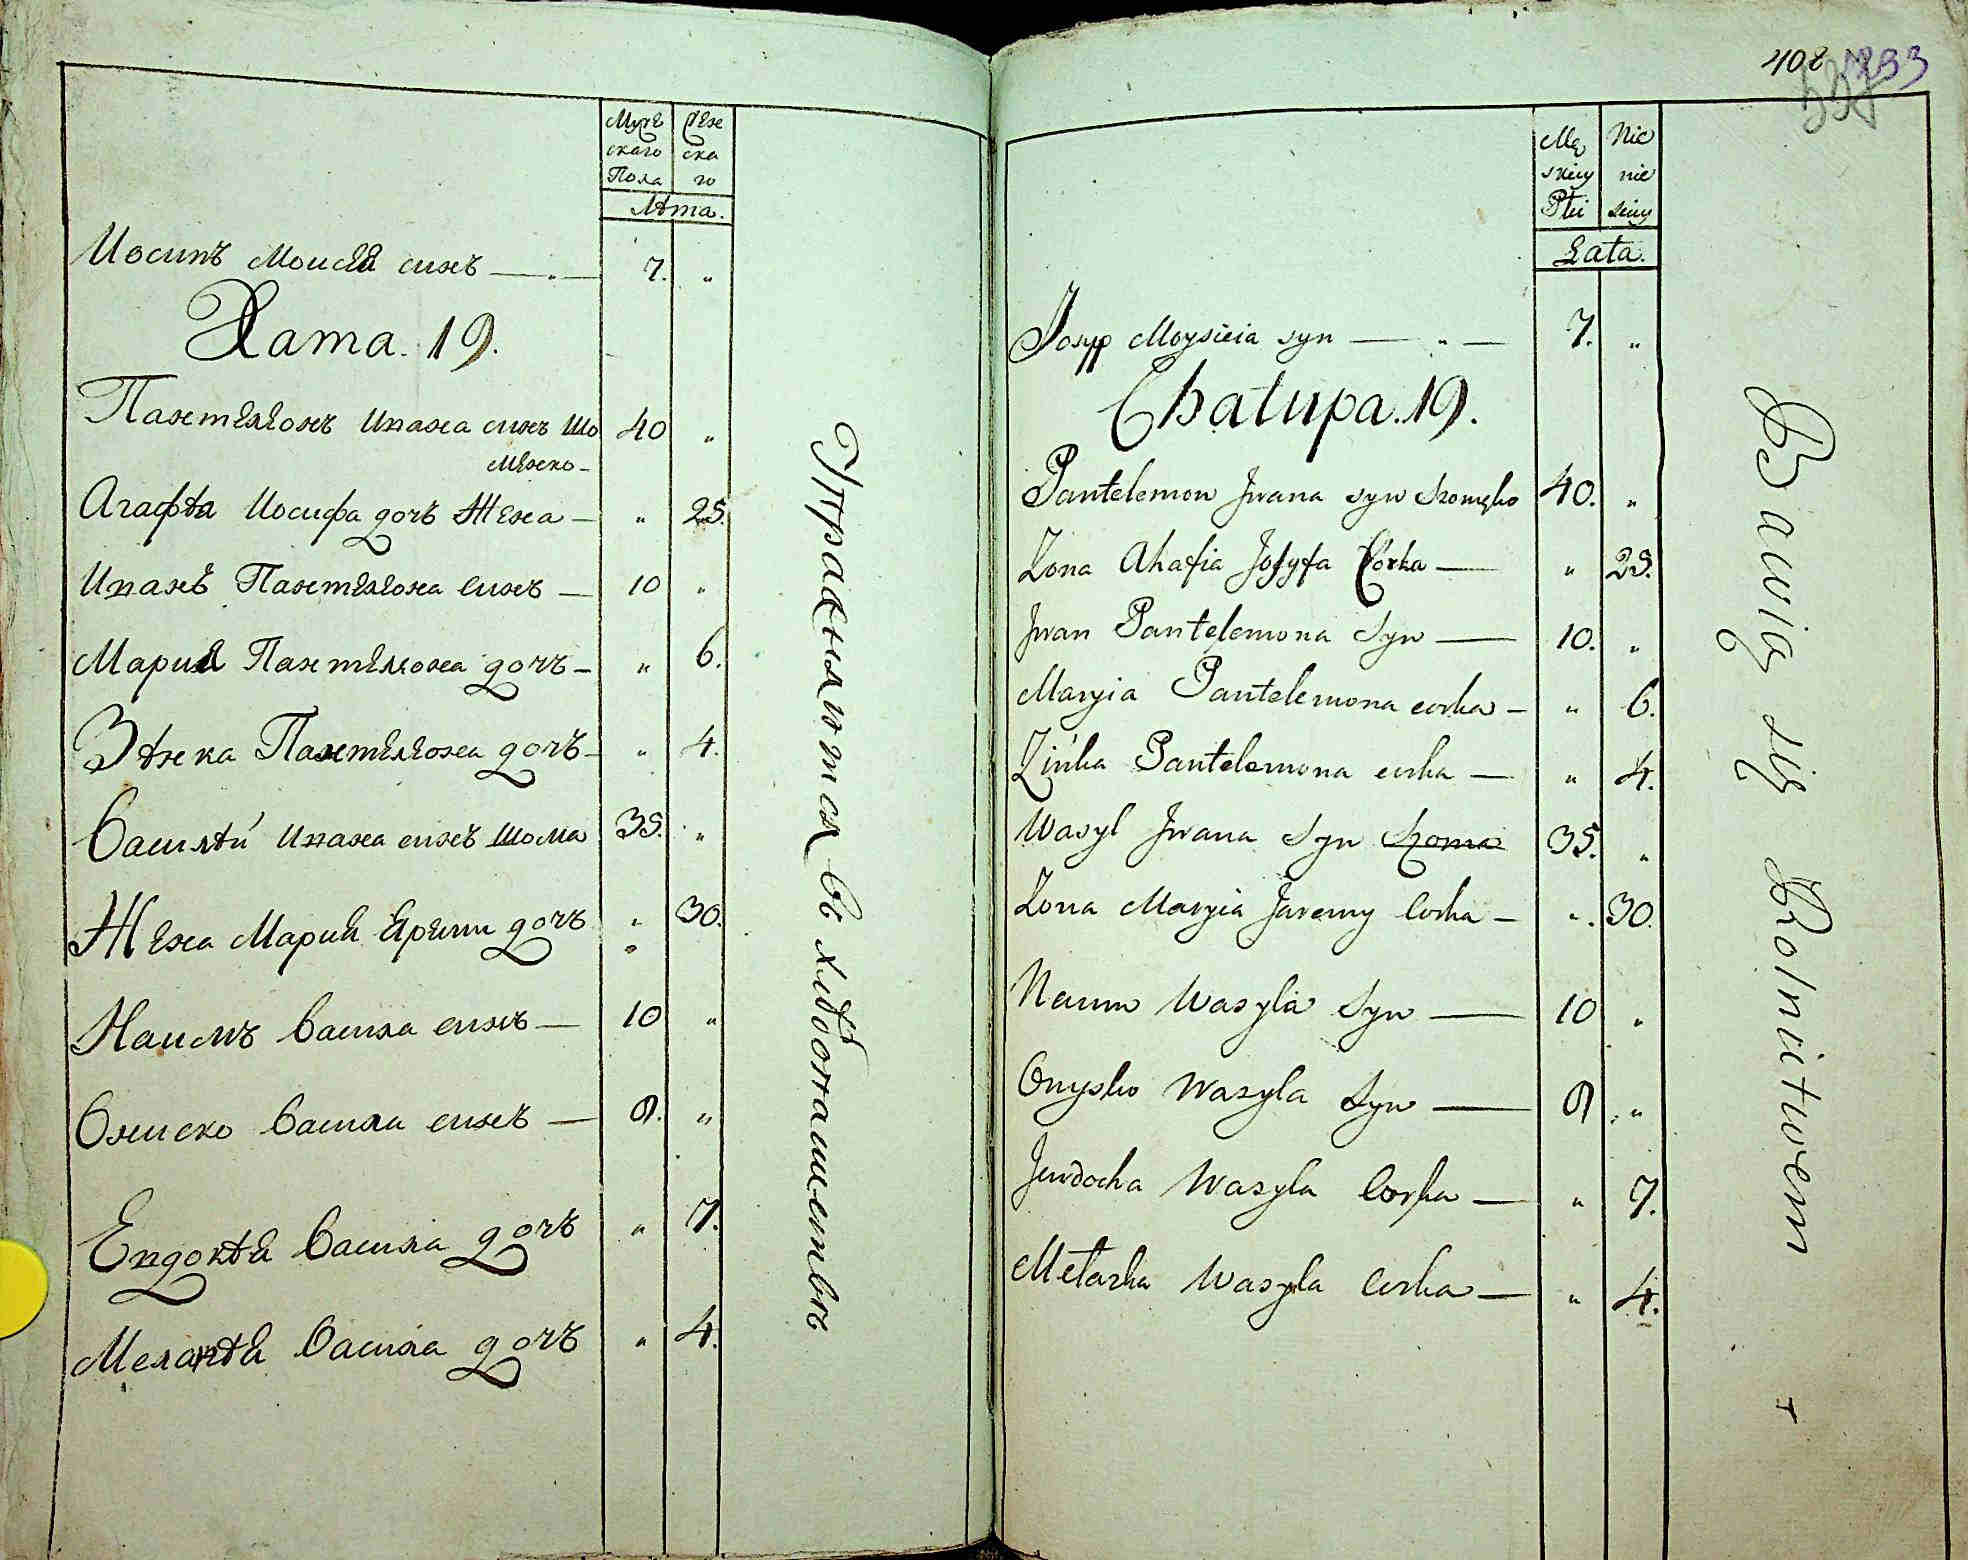 Мужескаго Пола
Женскаго
Лѣта.
Иосипъ Моисея синъ — 7. "
Хата. 19.
Пантелеонъ Ивана синъ Шо 40 "
менко -
Агафѣа Иосифа дочъ Жена — " 25.
Иванъ Пантелеона синъ — 10 "
Мария Пантелеона дочъ — " 6.
Зѣнка Пантелеона дочъ — " 4.
Василѣй Ивана синъ Шома 35. "
Жена Мария Яреми дочъ " 30.
Наумъ Васила синъ — 10 "
Ониско Васила синъ — 9. "
Евдокѣя Васила дочъ " 7.
Меланѣя Васила дочъ " 4.
Упражняются въ хлѣбопашествѣ
408 233
Mę
skiey
Płci
Nie
wie
sciey
Lata.
Josyp Moysieia syn — " — 7. "
Chałupa. 19.
Pantelemon Jwana syn Szomęko 40. "
Zona Ahafia Jozyfa Corka — " 25.
Jwan Pantelemona Syn — 10. "
Maryia Pantelemona corka — " 6.
Zińka Pantelemona corka — " 4.
Wasyl Jwana Syn Szoma 35. "
Zona Maryia Jaremy Corka — " 30.
Naum Wasyla Syn — 10 "
Onysko Wasyla Syn — 9 "
Jewdocha Wasyla Corka — " 7.
Mełaszka Wasyla Corka — " 4.
Bawią się Rolnictwem